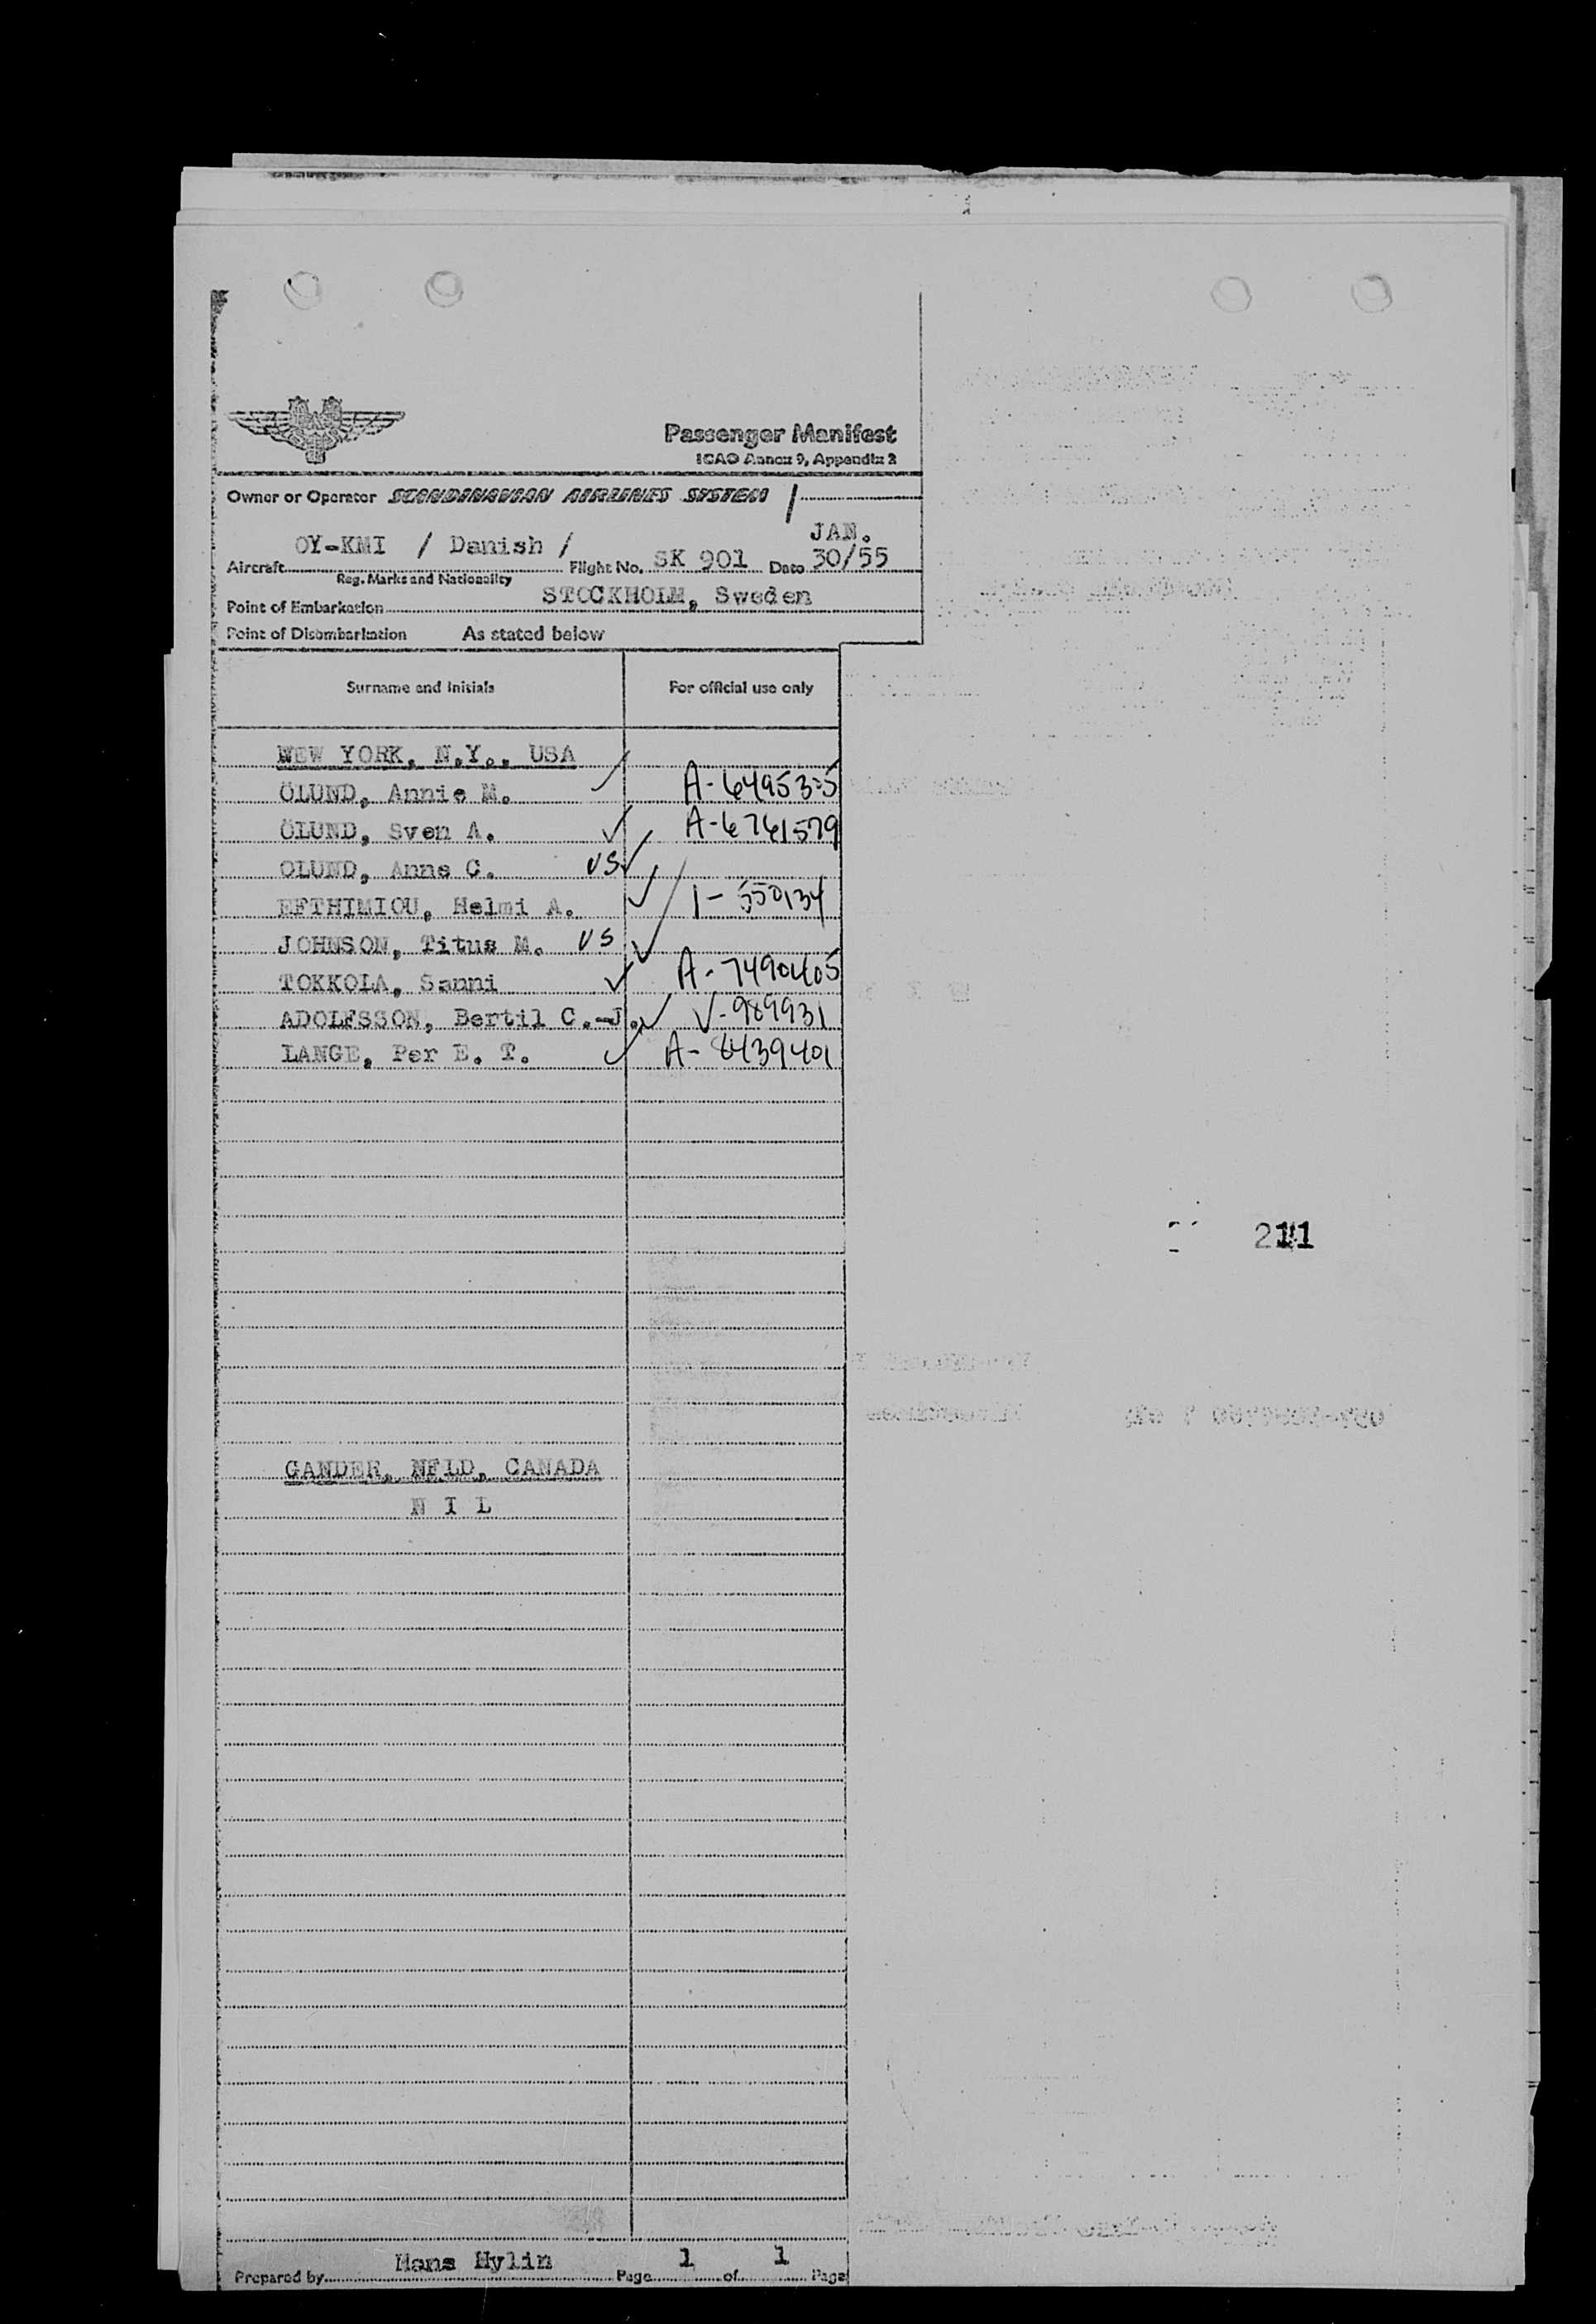 Passenger Manifest
ICAO Annex 9, Appendix 2
Owner or Operator SCANDINAVIAN AIRLINES SYSTEM /
JAN.
Aircraft OY-KMI / Danish / Flight No. SK 901 Date 30/55
Reg. Marks and Nationality
Point of Embarkation STOCKHOLM, Sweden
Point of Disembarkation As stated below
Surname and Initials For official use only
NEW YORK, N.Y., USA
ÖLUND, Annie M. ✓
ÖLUND, Sven A. ✓ A-6761579
OLUND, Anne C. US ✓
EFTHIMIOU, Helmi A. ✓ 1-550134
JOHNSON, Titus M. US ✓
TOKKOLA, Sanni ✓ A-7490405
ADOLFSSON, Bertil C.-J. ✓ V-989931
LANGE, Per E. T. ✓ A-8439401
211
GANDER, NFLD, CANADA
N I L
Prepared by Hans Hylin Page 1 of 1 Page